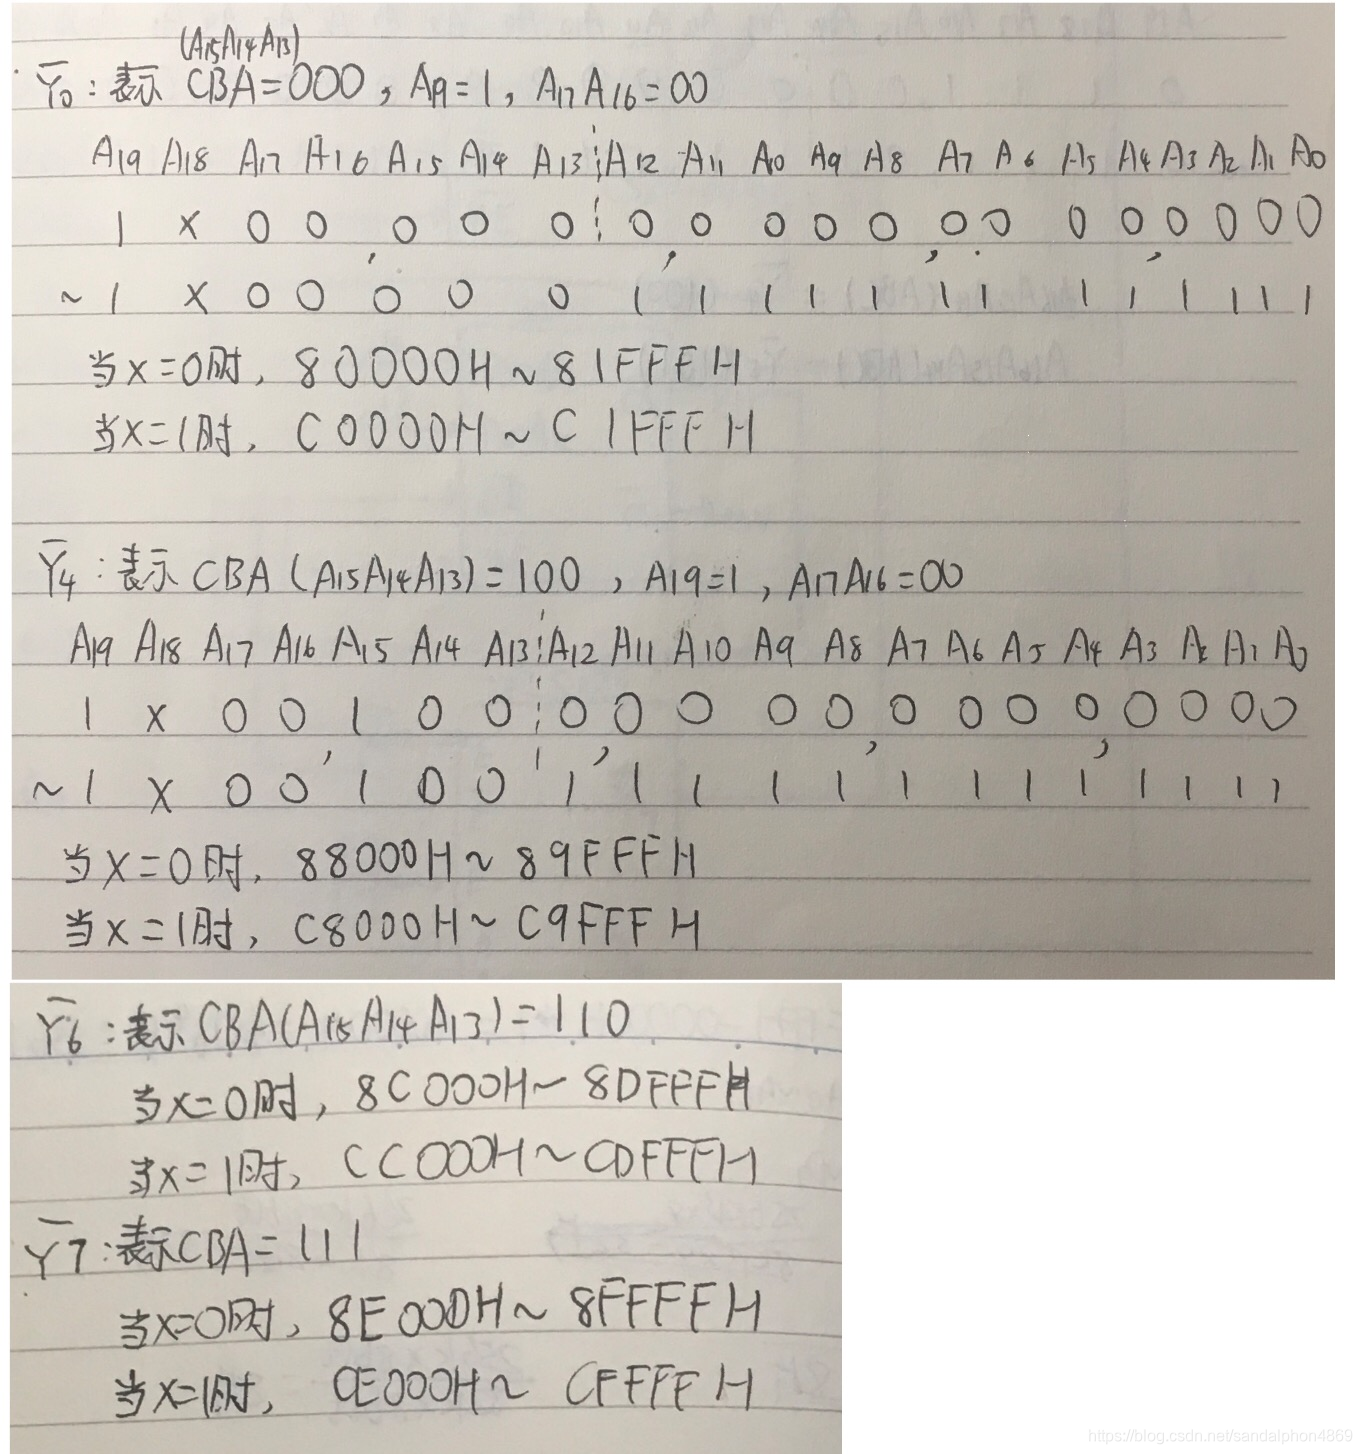 (A15A14A13)
Y̅0：表示 CBA=000，A9=1，A17A16=00
A19 A18 A17 A16 A15 A14 A13 A12 A11 A0 A9 A8 A7 A6 A5 A4 A3 A2 A1 A0
1 X 0 0 , 0 0 0 0 , 0 0 0 0 , 0 0 0 0 , 0 0 0 0
~ 1 X 0 0 0 0 0 1 1 1 1 1 1 1 1 1 1 1 1 1
当X=0时，80000H ~ 81FFFH
当X=1时，C0000H ~ C1FFFH
Y̅4：表示 CBA（A15A14A13）=100，A19=1，A17A16=00
A19 A18 A17 A16 A15 A14 A13 A12 A11 A10 A9 A8 A7 A6 A5 A4 A3 A2 A1 A0
1 X 0 0 , 1 0 0 0 , 0 0 0 0 , 0 0 0 0 , 0 0 0 0
~ 1 X 0 0 1 0 0 1 1 1 1 1 1 1 1 1 1 1 1 1
当X=0时，88000H ~ 89FFFH
当X=1时，C8000H ~ C9FFFH
Y̅6：表示CBA(A15A14A13)=110
当X=0时，8C000H ~ 8DFFFH
当X=1时，CC000H ~ CDFFFH
Y̅7：表示CBA=111
当X=0时，8E000H ~ 8FFFFH
当X=1时，CE000H ~ CFFFFH
https://blog.csdn.net/sandalphon4869